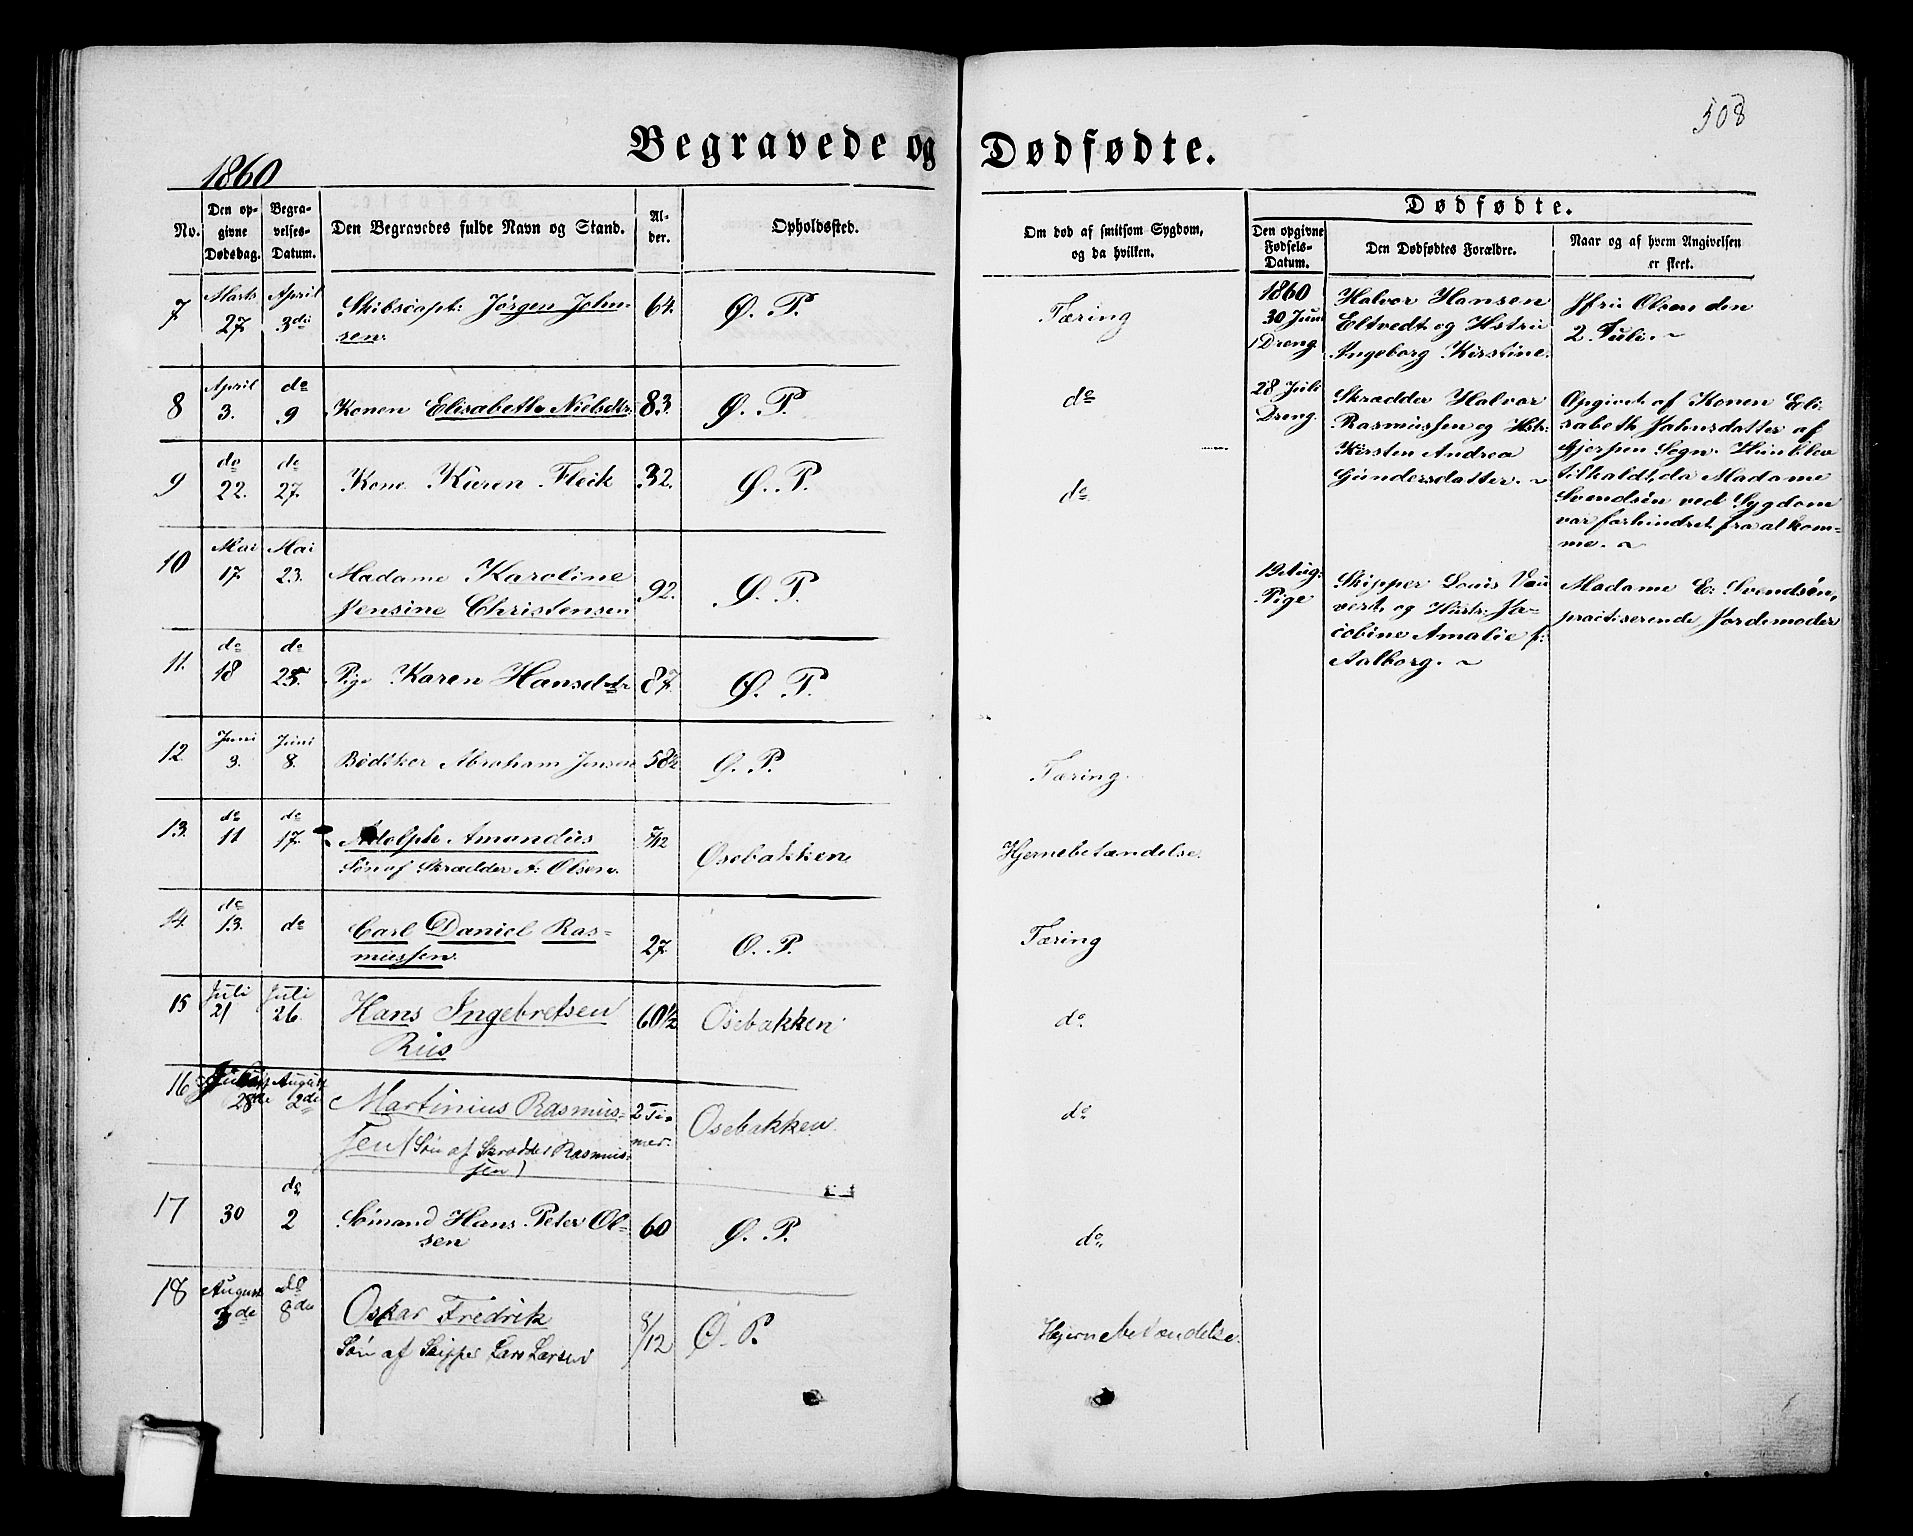 508
Begravede og Dødfødte.
1860
No.
Den op-
givne
Dødsdag.
Begra-
velses-
Datum.
Den Begravedes fulde Navn og Stand.
Al-
der.
Opholdssted.
Om død af smitsom Sygdom,
og da hvilken.
Dødfødte.
Den opgivne
Fødsels-
Datum.
Den Dødfødtes Forældre.
Naar og af hvem Angivelsen
er skeet.
7 Marts 27. April 3die Skibscapt: Jörgen John- 64. Ø. P. Tæring
sen.
8 April 3. do 9 Konen Elisabeth Nielsdtr 83. Ø. P. do
9 do 22. do 27. Kone Karen Fleik 32. Ø. P. do
10 Mai 17. Mai 23. Madame Karoline 92. Ø. P.
Jensine Christensen
11. do 18 do 25. Pige Karen Hansdtr 87. Ø. P.
12. Juni 3. Juni 8. Bödiker Abraham Jensen 58½ Ø. P. Tæring.
13. do 11 do 17. Adolph Amandus /12 Osebakken Hjernebetændelse.
Sön af Skrædder A: Olsen.
14. do 13. do Carl Daniel Ras- 27. Ø. P. Tæring
mussen.
15 Juli 21 Juli 26. Hans Ingebretsen 60½ Osebakken do
Riis
16 28de August 2de Martinius Rasmus- 2 Ti- Osebakken do
sen (Sön af Skrædder Rasmus- mer.
sen)
17 30 do 2 Sömand Hans Peter Ol- 60 Ø. P. do
sen
18 August 3de do 8de Oskar Fredrik 8/12 Ø. P. Hjernebetændelse.
Sön af Skipper Lars Larsen
1860
30 Juni
1 Dreng.
Halvor Hansen
Eltvedt og Hstru
Ingeborg Kirstine.
Jfru Olsen den
2 Juli.
28 Juli
Dreng.
Skrædder Halvor
Rasmussen og Hstr:
Kirsten Andrea
Gundersdatter.
Opgivet af Konen Eli-
sabeth Jahnsdatter af
Gjerpen Sogn. Hun blev
tilkaldt, da Madame
Svendsén ved Sygdom
var forhindret fra at kom-
me.
19 Aug:
Pige
Skipper Louis Vau
vert og Hustr: Ja-
cobine Amalie f:
Aalborg.
Madame E: Svendsén,
practiserende Jordemoder